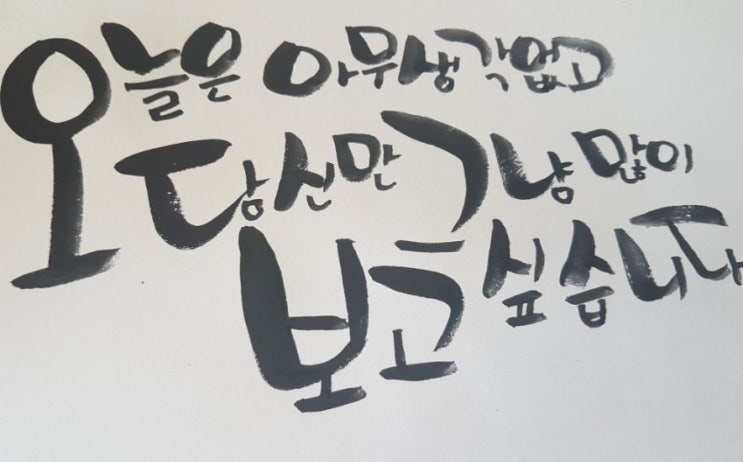 오늘은 아무생각없고
당신만 그냥 많이
보고싶습니다